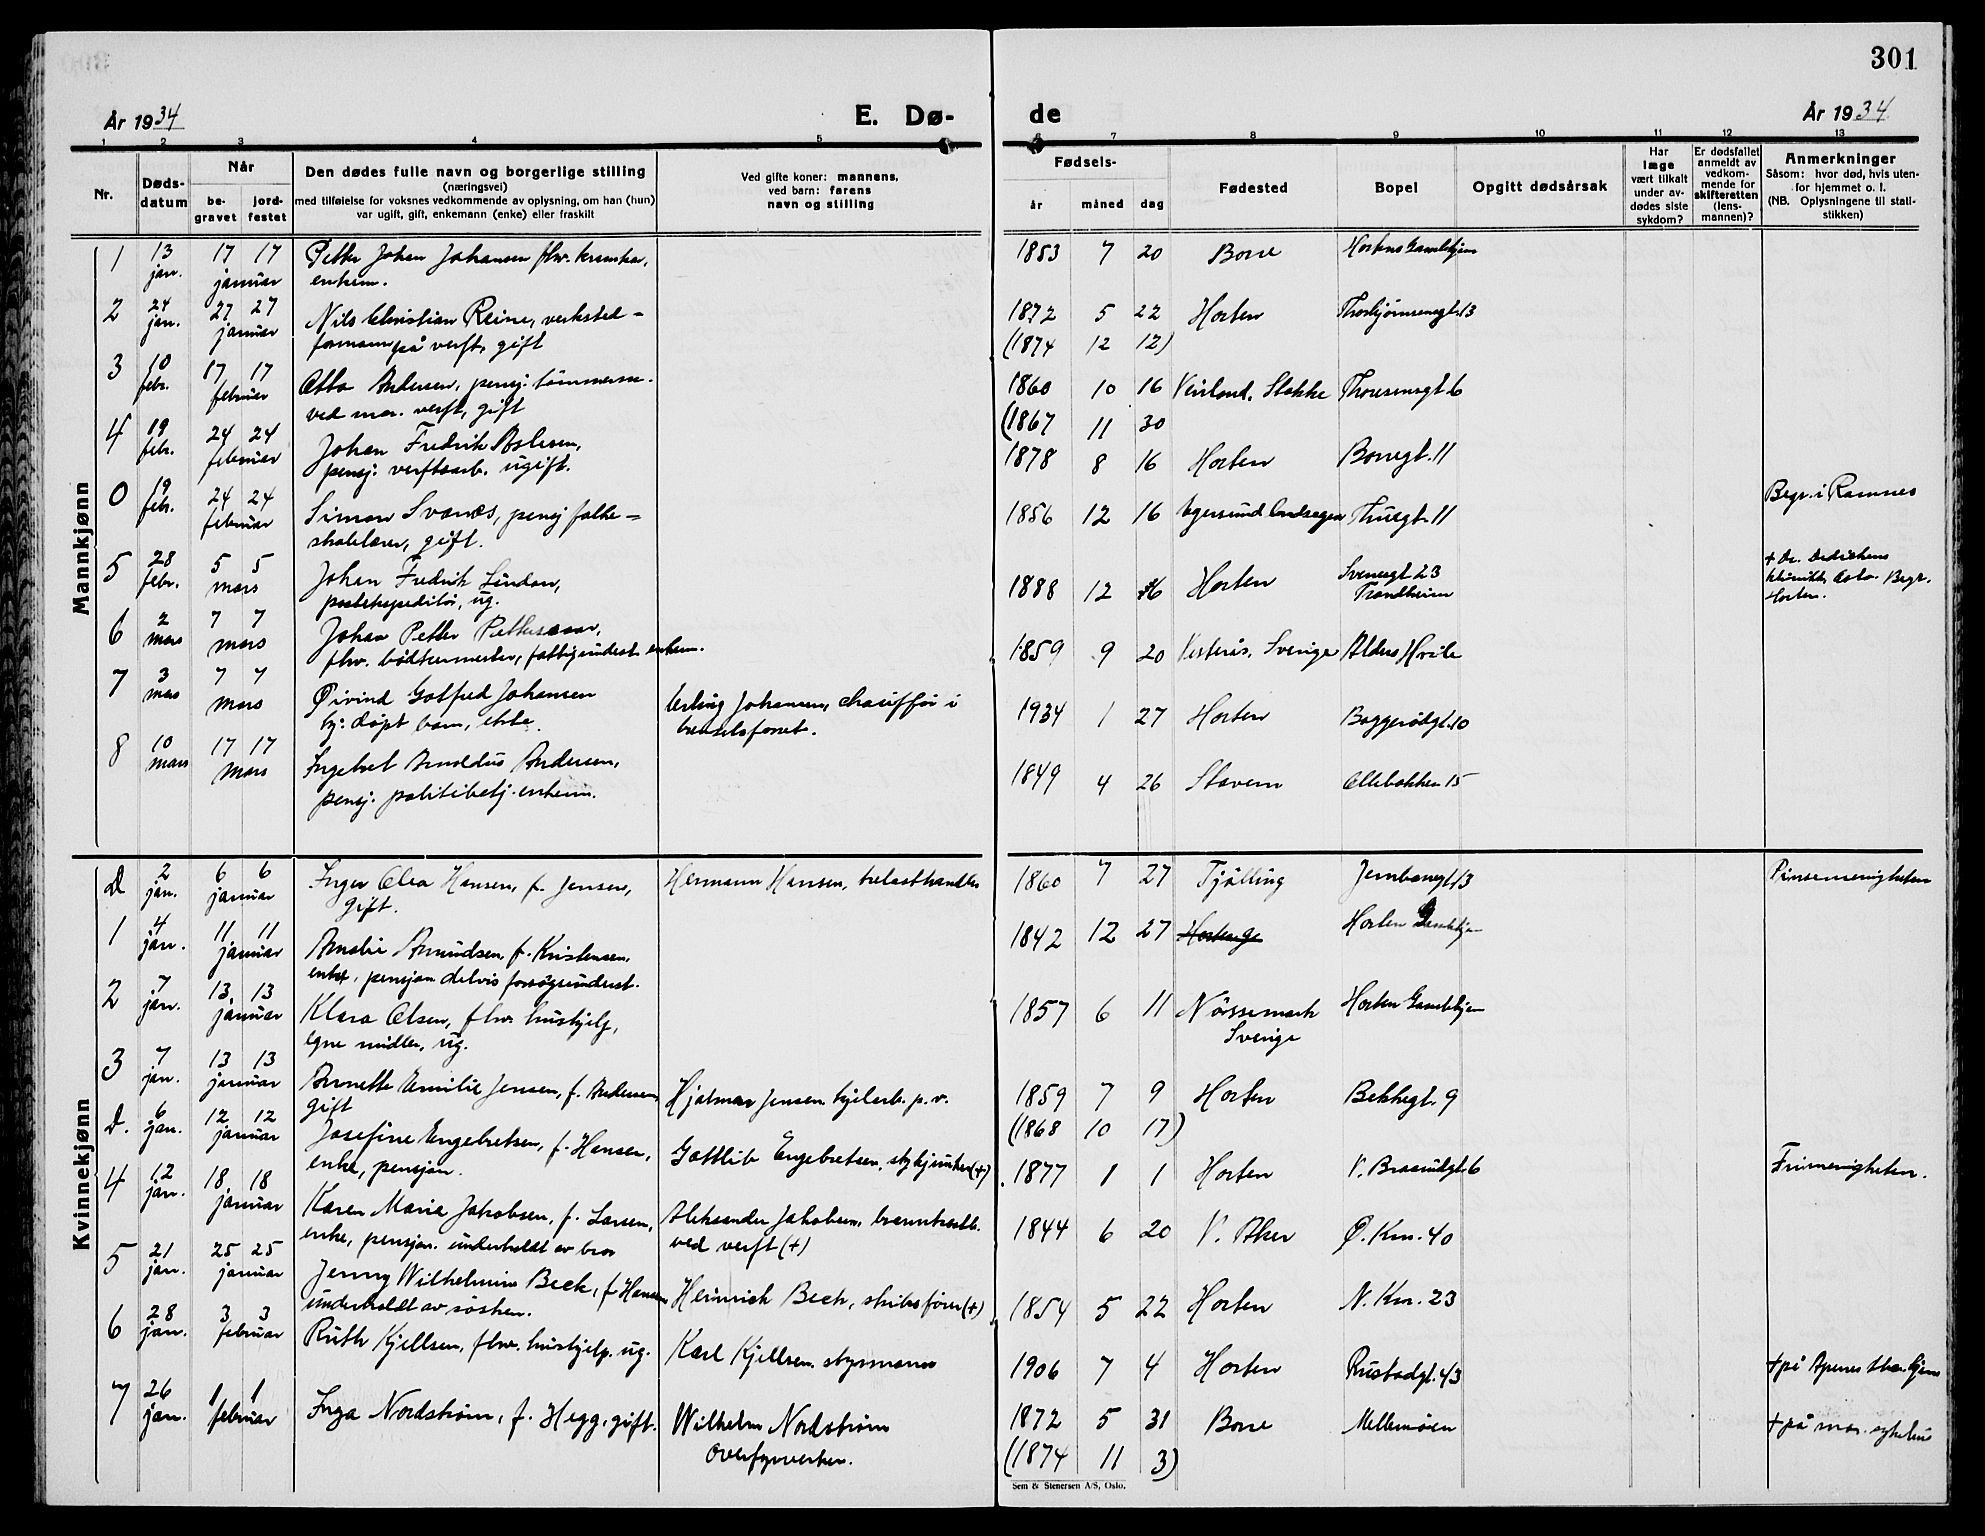 301
År 1934
E. Dø-
de
År 1934
1 2 3 4 5 6 7 8 9 10 11 12 13
Nr.
Døds-
datum
Når
be-
gravet
jord-
festet
Den dødes fulle navn og borgerlige stilling
(næringsvei)
med tilføielse for voksnes vedkommende av oplysning, om han (hun)
var ugift, gift, enkemann (enke) eller fraskilt
Ved gifte koner: mannens,
ved barn: farens
navn og stilling
Fødsels-
år måned dag
Fødested
Bopel
Opgitt dødsårsak
Har
læge
vært tilkalt
under av-
dødes siste
sykdom?
Er dødsfallet
anmeldt av
vedkom-
mende for
skifteretten
(lens-
mannen)?
Anmerkninger
Såsom: hvor død, hvis uten-
for hjemmet o. l.
(NB. Oplysningene til stati-
stikken)
Mannkjønn
1 13 17 17 Petter Johan Johansen fhv. 1853 7 20 Borre Hortens Gamlehjem
jan. januar enkem.
2 24 27 27 Nils Christian Reine, verksted- 1872 5 22 Horten Thorbjørnsensgt. 13
jan. januar formann på verft, gift (1874 12 12)
3 10 17 17 Otto Andersen, pensj. tømmerm. 1860 10 16 Stokke Thoresensgt 6
febr. februar ved mar. verft, gift (1867 11 30
4 19 24 24 Johan Fredrik Aslesen, 1878 8 16 Horten Borregt. 11
febr. februar pensj. verftsarb. ugift.
0 19 24 24 Simon Svanes, pensj folke- 1856 12 16 Egersund landsogn Thuegt. 11 Begr. i Ramnes
febr. februar skolelærer, gift.
5 28 5 5 Johan Fredrik Lindon, 1888 12 Horten Svenesgt 23 + Dr. Dedichens
febr. mars postekspeditør, ug. Trondheim klinikk, Oslo. Begr.
Horten.
6 2 7 7 Johan Petter Pettersson, 1859 9 20 Vesterås, Sverige Alders Hvile
mars mars fhv. bødkermester, fattigunderst. enkem.
7 3 7 7 Øivind Gotfred Johansen Erling Johansen, chauffør i 1934 1 27 Horten Baggerødgt. 10
mars mars hj: døpt barn, ekte.
8 10 17 17 Ingebret Arnoldus Andersen, 1849 4 26 Stavern Ollebakken 15
mars mars pensj. politibetj. enkem.
Kvinnekjønn
D 2 6 6 Inger Olea Hansen, f. Jensen, Hermann Hansen, trelasthandler 1860 7 27 Tjølling Jernbanegt. 13 Pinsemenigheten
jan. januar gift.
1 4 11 11 Amalie Amundsen, f. Kristensen, 1842 12 27 Horten Gamlehjem
jan. januar enke, pensjon delvis forsørgunderst.
2 7 13 13 Klara Olsen, fhv. hushjelp, 1857 6 11 Nössemark Horten Gamlehjem
jan. januar egne midler, ug. Sverige
3 7 13 13 Annette Emilie Jensen, f. Andersen, Hjalmar Jensen, kjelarb. p. v. 1859 7 9 Horten Bekkegt. 9
jan. januar gift (1868 10 17)
D. 6 12 12 Josefine Engebretsen, f. Hansen, Gottlib Engebretsen, stykjunker (+) 1877 1 1 Horten V. Braarudgt. 6 Frimenigheten.
jan. januar enke, pensjon.
4 12 18 18 Karen Marie Jakobsen, f. Larsen, Aleksander Jakobsen, 1844 6 20 V. Aker Ø. Km. 40
jan. januar enke, pensjon. underholdt av bror ved verft (+)
5 21 25 25 Jenny Wilhelmine Beck, f. Hansen Heinrich Beck, skibsfører (+) 1854 5 22 Horten N. Km. 23
jan. januar underholdt av søsken.
6 28 3 3 Ruth Kjellsen, fhv. hushjelp, ug. Karl Kjellsen, styrmann 1906 7 4 Horten Rustadgt. 43 + på Apenes
jan. februar
7 26 1 1 Inga Nordstrøm, f. Hegg, gift. Wilhelm Nordstrøm 1872 5 31 Borre Mellemøen + på mar. sykehus
jan. februar Overfyrverker. (1874 11 3)
Sem & Stenersen A/S, Oslo.